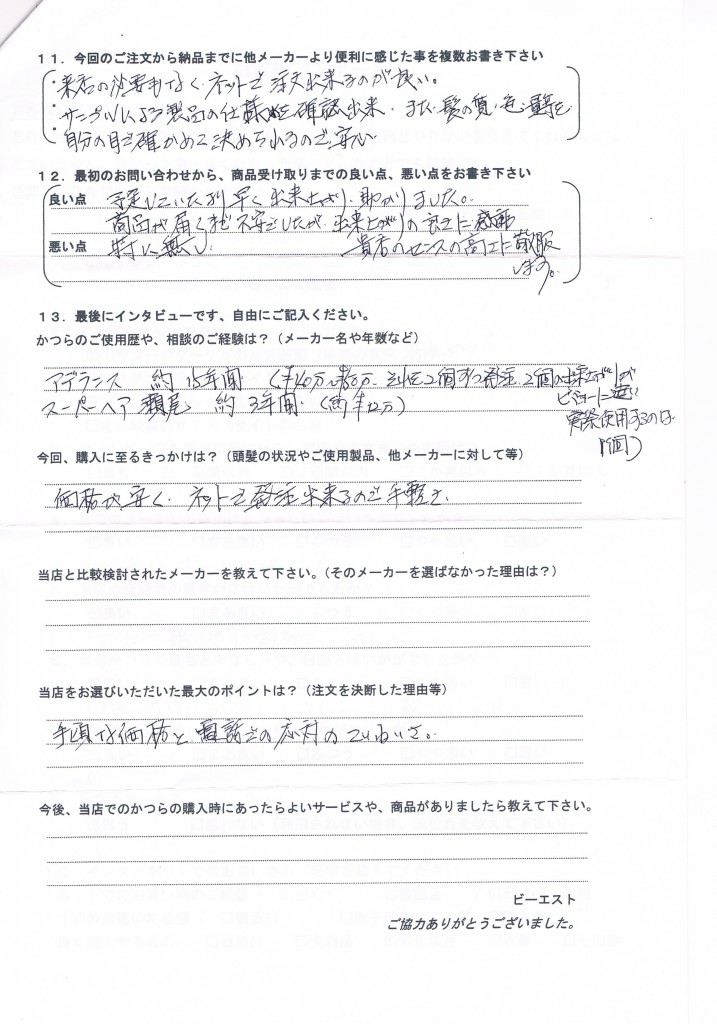 11．今回のご注文から納品までに他メーカーより便利に感じた事を複数お書き下さい
・来店の必要もなく、ネットで注文出来るのが良い。
・サンプルによる製品の仕様を確認出来、また、髪の質、色、量等を
・自分の目で確かめて決められるので安心
12．最初のお問い合わせから、商品受け取りまでの良い点、悪い点をお書き下さい
良い点 予定していたより早く出来上がり、助かりました。
商品が届くまで不安でしたが、出来上がりの良さに感動
悪い点 特に無し 貴店のセンスの高さに敬服
します。
13．最後にインタビューです、自由にご記入ください。
かつらのご使用歴や、相談のご経験は？（メーカー名や年数など）
アデランス 約15年間 2個ずつ発注、2個の出来上がりが
スーパーヘア 瀬尾 約3年間 （約￥12万） ビミョーに違い
実際使用するのは
1個）
今回、購入に至るきっかけは？（頭髪の状況やご使用製品、他メーカーに対して等）
価格が安く、ネットで発注出来るので手軽さ
当店と比較検討されたメーカーを教えて下さい。（そのメーカーを選ばなかった理由は？）
当店をお選びいただいた最大のポイントは？（注文を決断した理由等）
手頃な価格と電話での応対のていねいさ。
今後、当店でのかつらの購入時にあったらよいサービスや、商品がありましたら教えて下さい。
ビーエスト
ご協力ありがとうございました。